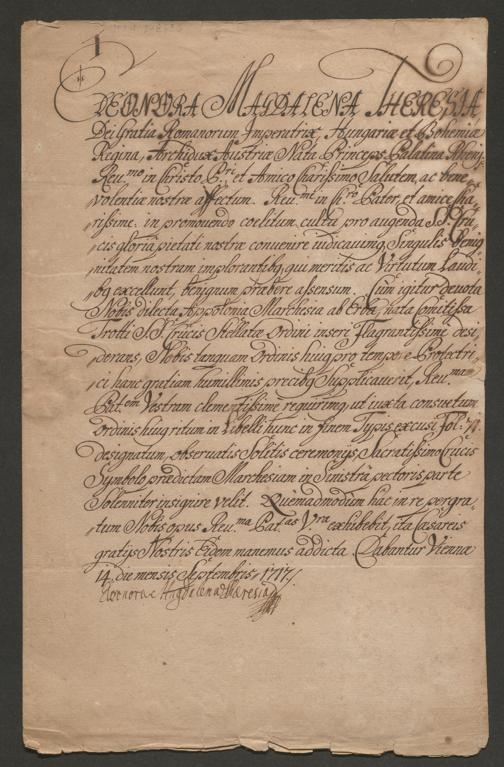 ELEONORA MAGDALENA THERESIA
Dei Gratia Romanorum Imperatrix, Hungariæ et Bohemiæ
Regina, Archidux Austriæ Nata Princeps Palatina Rheni.
Reu.mo in Christo P.ri et Amico Charissimo Salutem, ac bene,
volentiæ nostræ affectum. Reu.me in Ch.ro Pater, et amice cha,
rissime: in promovendo coelitum cultu pro augenda S.S. Cru,
cis gloria, pietati nostræ convenire iudicavimq, Singulis Benig
nitatem nostram implorantibq, qui meritis ac Virtutum Laudi,
bq excellunt, benignum præbere assensum. Cùm igitur devota
Nobis dilecta Appolonia Marchesia ab Erba, nata Comitissa
Trotti S.S. Crucis Stellatæ Ordini inseri flagrantissimè desi,
derans, Nobis tanquam Ordinis huiq pro tempore Protectri,
ci hanc gratiam humillimis precibq Supplicaverit, Reu.mam
Pat.em Vestram clementissimè requirimq, ut iuxta consuetum
Ordinis huiq ritum in Libelli hunc in finem Typis excusi Fol:
designatum, observatis Solitis ceremonijs Sacratissimo Crucis
Symbolo prædictam Marchesiam in Sinistra pectoris parte
Solenniter insignire velit. Quemadmodum hac in re pergra,
tum Nobis opus Reu.ma Pat.as Vra exhibebit, ita Cæsareis
gratijs Nostris Eidem manemus addictæ. Dabantur Viennæ
14. die mensis Septembris, 1717.
Eleonora Magdalena Theresia